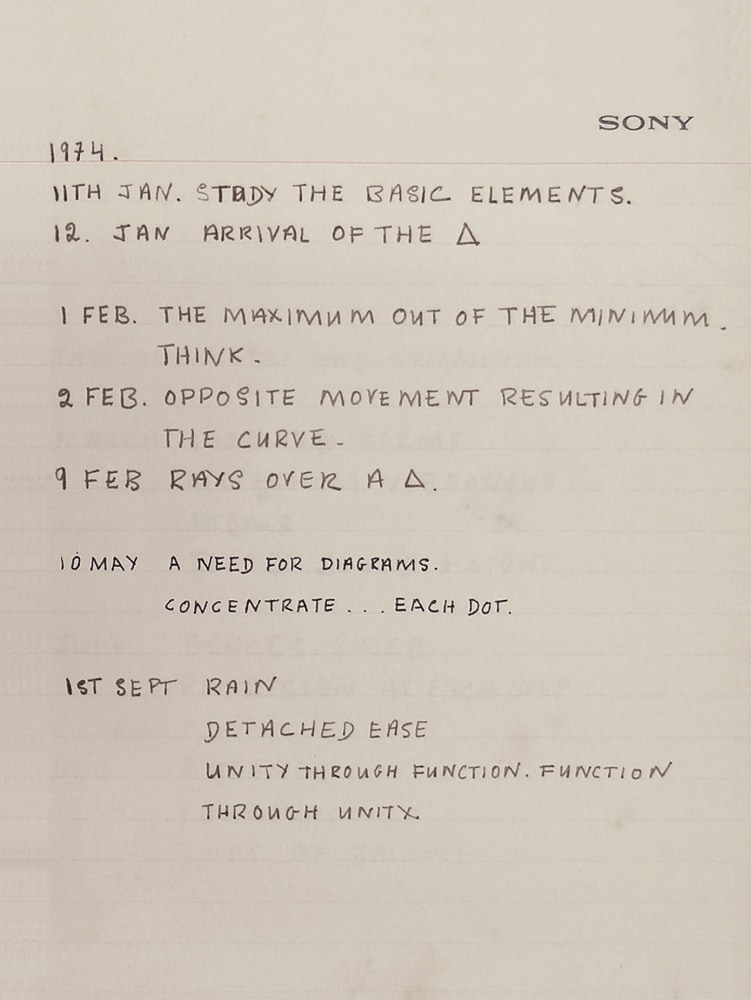 SONY
1974.
11TH JAN. STUDY THE BASIC ELEMENTS.
12. JAN ARRIVAL OF THE Δ
1 FEB. THE MAXIMUM OUT OF THE MINIMUM.
THINK.
2 FEB. OPPOSITE MOVEMENT RESULTING IN
THE CURVE.
9 FEB RAYS OVER A Δ.
10 MAY A NEED FOR DIAGRAMS.
CONCENTRATE . . . EACH DOT.
1ST SEPT RAIN
DETACHED EASE
UNITY THROUGH FUNCTION. FUNCTION
THROUGH UNITY.